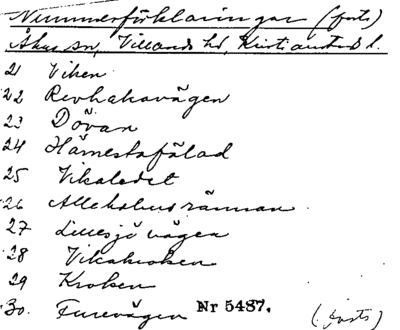 Nummerförklaringar (forts)
Åhus sn, Villands hd, Kristianstads l.
21 Viken
22 Revhakavägen
23 Dövan
24 Härnestafälad
25 Vikaledet
26 Allekohusrännan
27 Lillesjövägen
28 Vikakroken
29 Kroken
30. Furevägen Nr 5487. (forts)